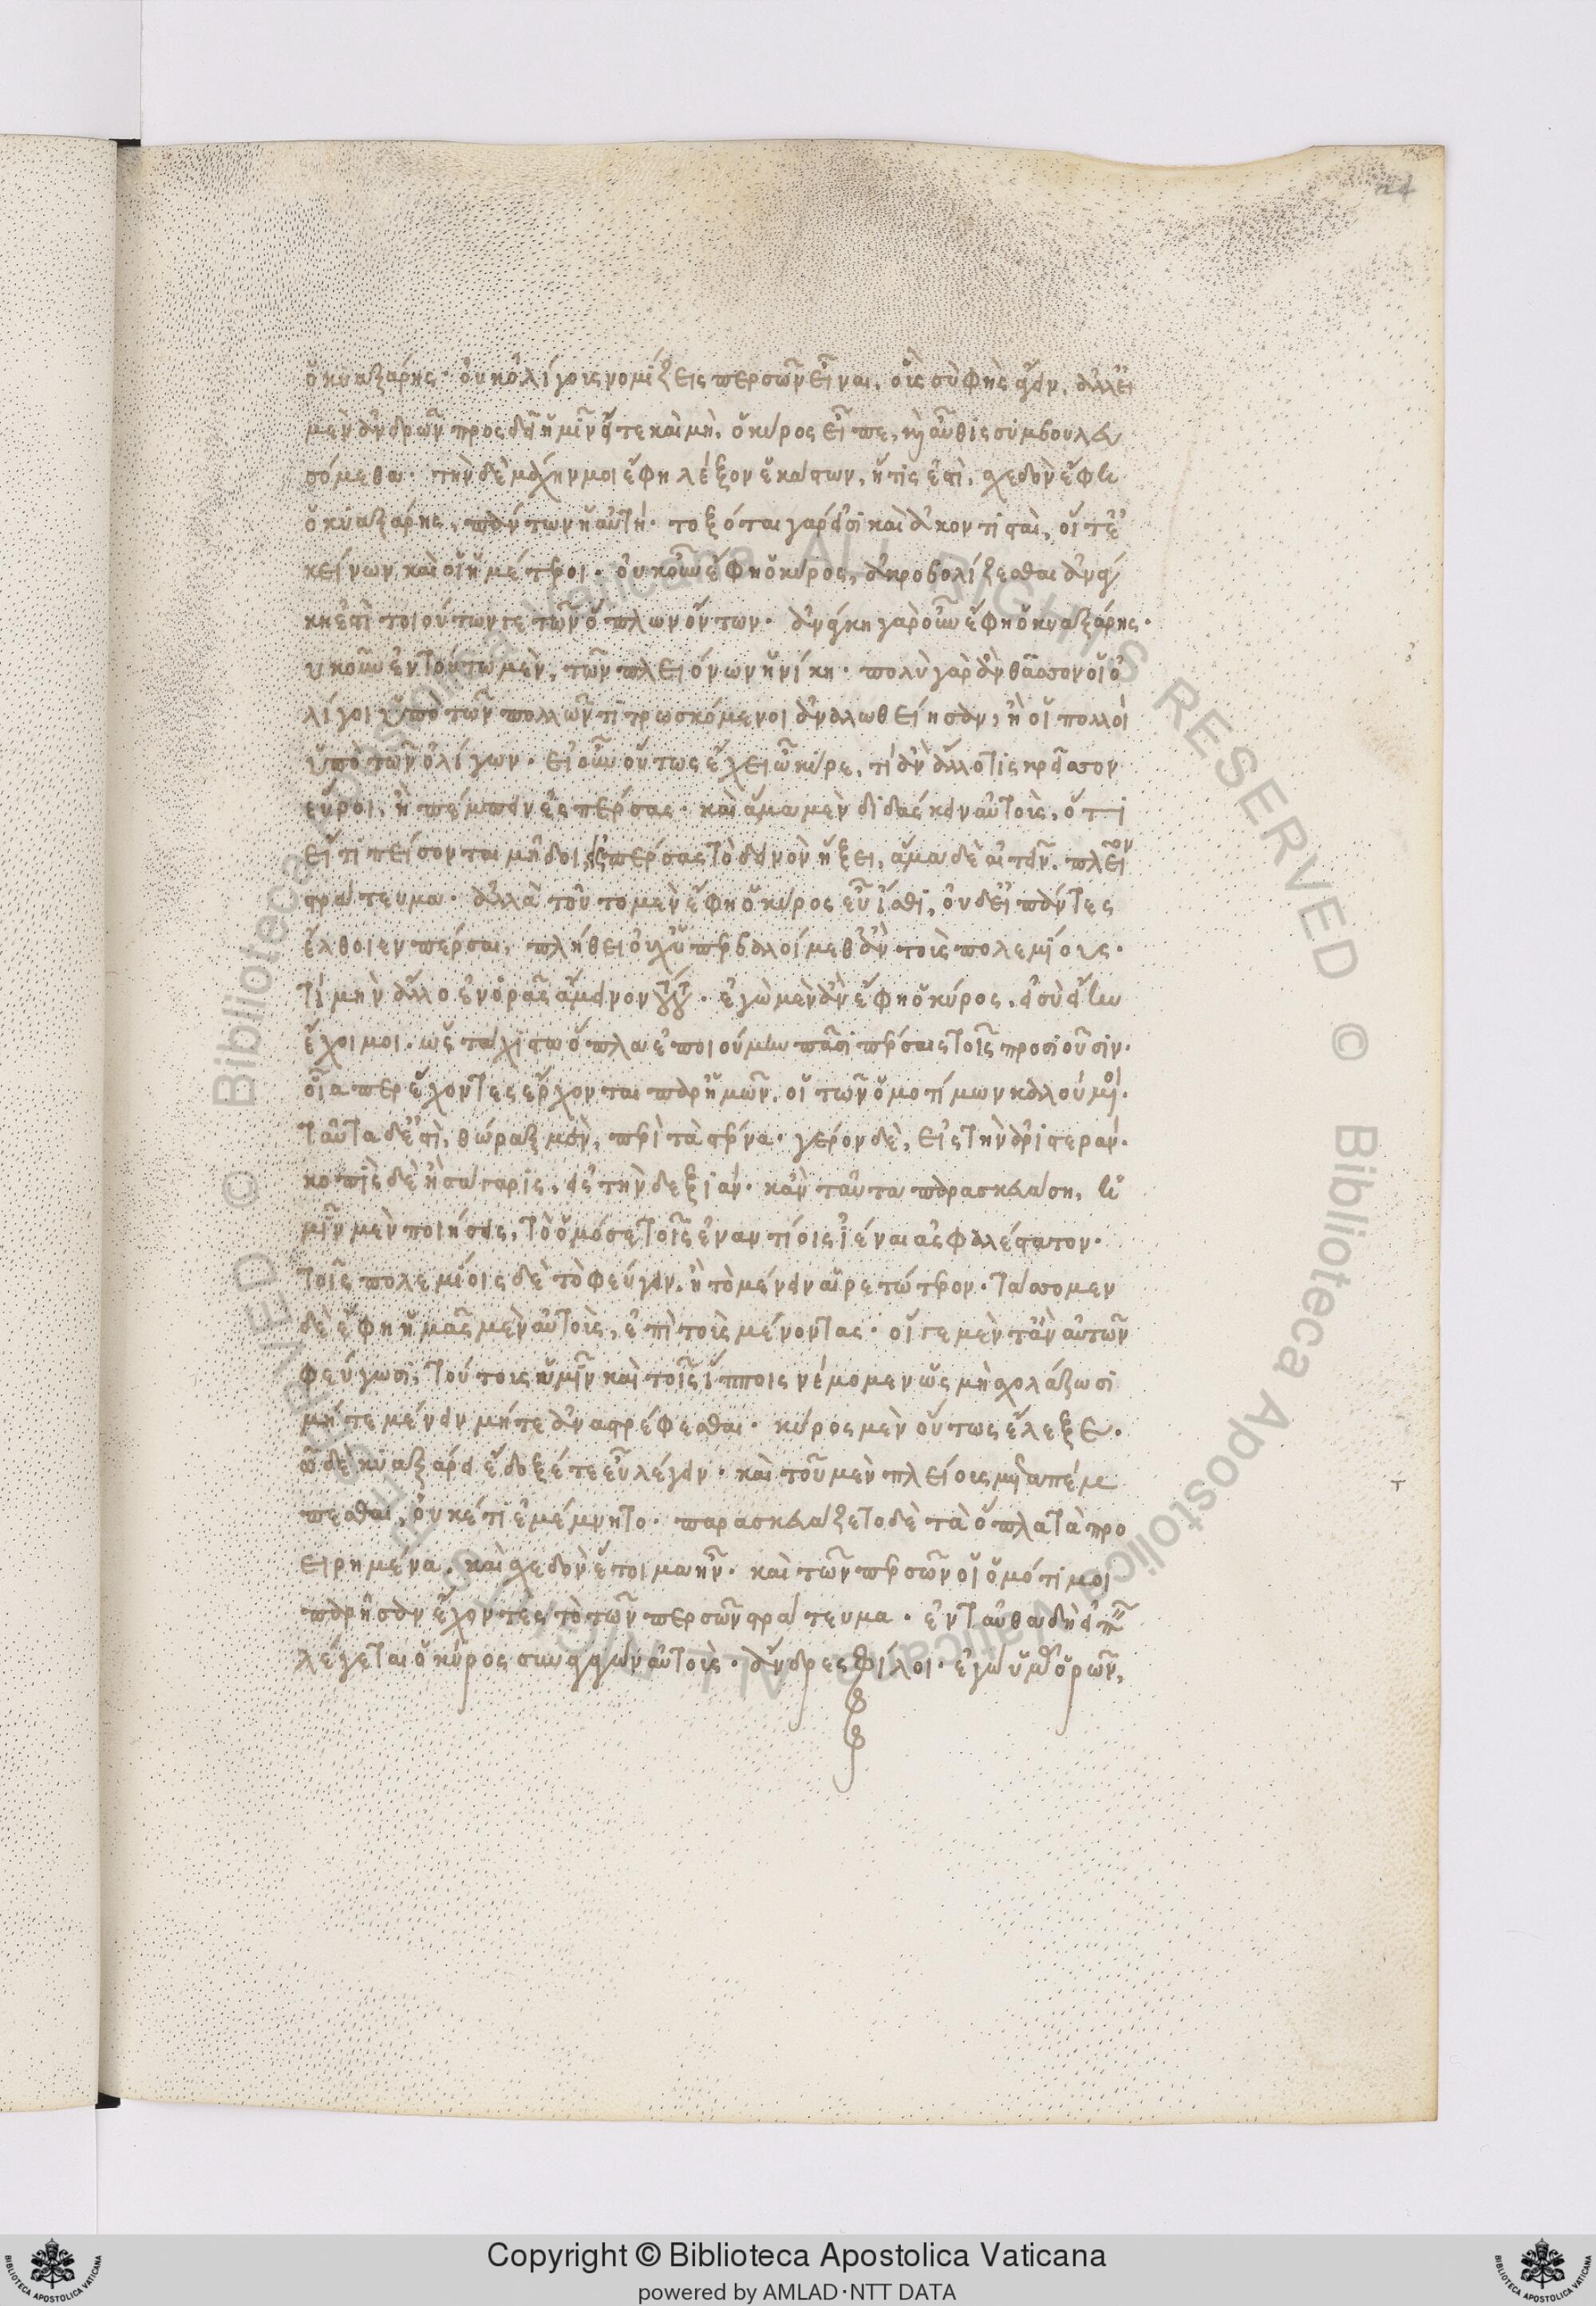 ὁ κυαξάρης· οὐκ ὀλίγους νομίζεις περσῶν εἶναι, οὓς σὺ φῂς ἄγειν. ἀλλ' εἰ
μὲν ἀνδρῶν προσδεῖ ἡμῖν εἴτε καὶ μὴ, ὁ κύρος εἶπε, καὶ αὖθις συμβουλευ
σόμεθα· τὴν δὲ μάχην μοι ἔφη λέξον ἑκάστων, ἥτις ἐστὶ. σχεδὸν ἔφη
ὁ κυαξάρης, πάντων ἡ αὐτή· τοξόται γάρ εἰσι καὶ ἀκοντισταὶ, οἵ τ' ἐ
κείνων καὶ οἱ ἡμέτεροι· οὐκοῦν ἔφη ὁ κύρος, ἀκροβολίζεσθαι ἀνάγ
κη ἐστὶ τοιούτων γε τῶν ὅπλων ὄντων· ἀνάγκη γὰρ οὖν ἔφη ὁ κυαξάρης·
υκοῦν ἐν τούτω μὲν, τῶν πλειόνων ἡ νίκη· πολὺ γὰρ ἂν θᾶσσον οἱ ὀ
λίγοι ὑπὸ τῶν πολλῶν τιτρωσκόμενοι ἀναλωθείησαν, ἢ οἱ πολλοὶ
ὑπὸ τῶν ὀλίγων· εἰ οὖν οὕτως ἔχει ὦ κύρε, τί ἂν ἄλλο τις κρεῖσσον
εὕροι, ἢ πέμπειν ἐς πέρσας· καὶ ἅμα μὲν διδάσκειν αὐτοὺς, ὅτι
εἴ τι πείσονται μῆδοι, ἐς πέρσας τὸ δεινὸν ἥξει, ἅμα δὲ αἰτεῖν πλεῖον
στράτευμα· ἀλλὰ τοῦτο μὲν ἔφη ὁ κύρος εὖ ἴσθι, οὐδ' εἰ πάντες
ἔλθοιεν πέρσαι, πλήθει οὐχ ὑπερβαλοίμεθ' ἂν τοὺς πολεμίους·
τί μὴν ἄλλο ἐνορᾶς ἄμεινον τούτου· ἐγὼ μὲν ἂν ἔφη ὁ κύρος, εἰ σὺ εἴην
ἔχοιμοι. ὡς τάχιστα ὅπλα ἐποιούμην πᾶσι πέρσαις τοῖς προσιοῦσιν·
οἷα περ ἔχοντες ἔρχονται παρ' ἡμῶν, οἱ τῶν ὁμοτίμων καλούμενοι·
ταῦτα δέ ἐστὶ, θώραξ μὲν, περὶ τὰ στέρνα· γέρον δὲ, εἰς τὴν ἀριστεραν·
κοπὶς δὲ ἢ σάγαρις, εἰς τὴν δεξιάν· κἂν ταῦτα παρασκευάση, ἡ
μῖν μὲν ποιήσεις, τὸ ὁμόσε τοῖς ἐναντίοις ἰέναι ἀσφαλέστατον·
τοῖς πολεμίοις δὲ τὸ φεύγειν, ἢ τὸ μένειν αἱρετώτερον· τάσσομεν
δὲ ἔφη ἡμᾶς μὲν αὐτοὺς, ἐπὶ τοὺς μένοντας· οἵ γε μὲν τἂν αὐτῶν
φεύγωσι, τούτους ὑμῖν καὶ τοῖς ἵπποις νέμομεν ὡς μὴ σχολάζωσι
μήτε μένειν μήτε ἀναστρέφεσθαι· κύρος μὲν οὕτως ἔλεξε·
ὦ δὲ κυαξάρει ἔδοξέ τε εὖ λέγειν· καὶ τοῦ μὲν πλείους μεταπέμ
πεσθαι, οὐκέτι ἐμέμνητο· παρασκευάζετο δὲ τὰ ὅπλα τὰ προ
ειρημένα. καὶ σχεδὸν ἕτοιμα ἦν· καὶ τῶν περσῶν οἱ ὁμότιμοι
παρῆσαν ἔχοντες τὸ τῶν περσῶν στράτευμα· ἐνταῦθα δὴ εἰπεῖν
λέγεται ὁ κύρος συναγαγὼν αὐτοὺς· ἄνδρες φίλοι· ἐγὼ ὑμᾶς ὁρῶν,